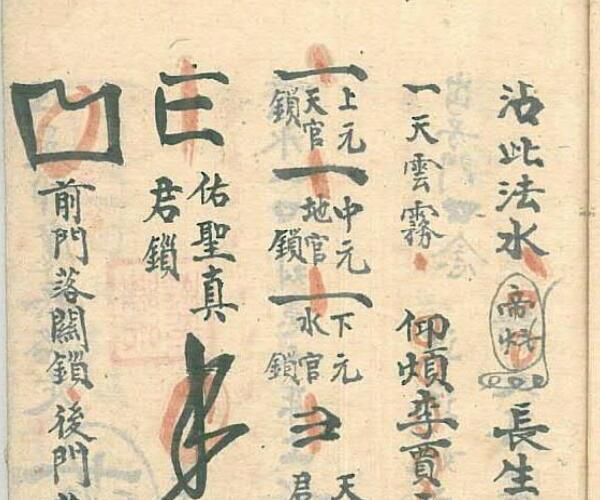 沾此法水 長生
一天雲霧 仰煩李賈
上元天官鎖
中元地官鎖
下元水官鎖
天
君
佑聖真君鎖
前門落關鎖後門